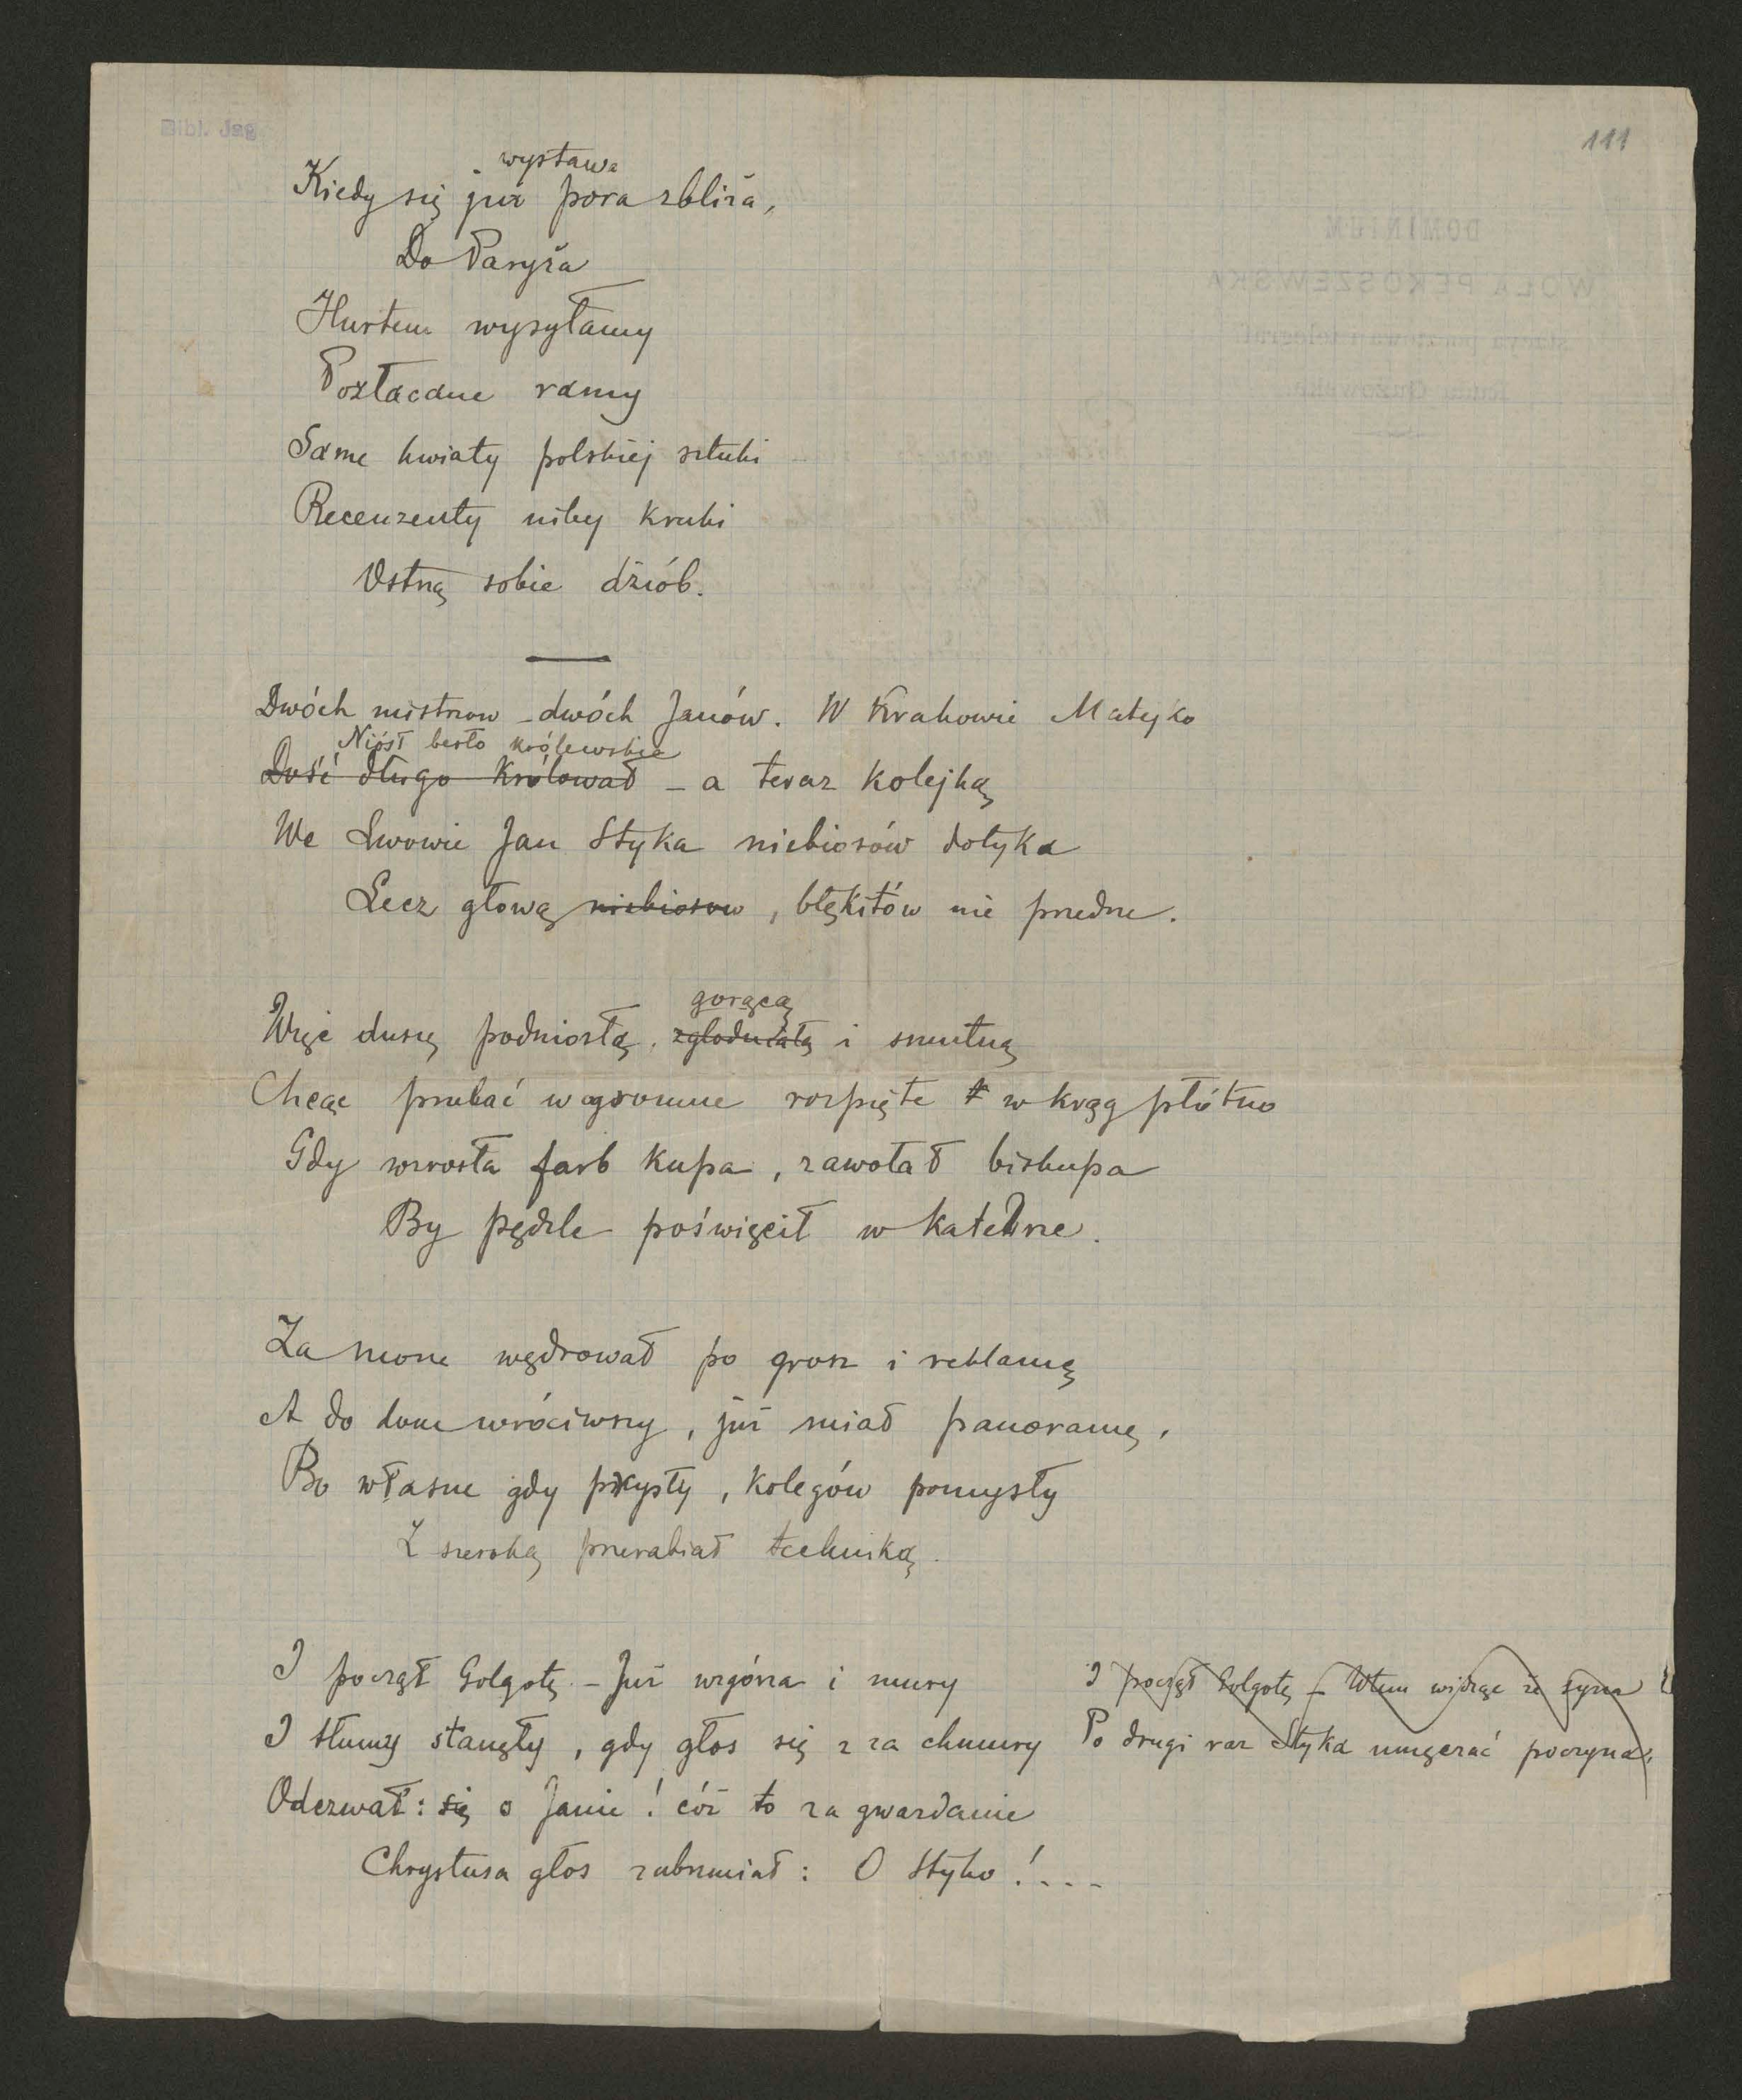 Bibl. Jag
111
wystawa
Kiedy się już pora zbliża,
Do Paryża
Hurtem wysyłamy
Pozłacane ramy
Same kwiaty polskiej sztuki
Recenzenty niby kruki
Ostrzą sobie dziób.
Dwóch mistrzow – dwóch Janów. W Krakowie Matejko
Niósł berło królewskie
Dość długo królował – a teraz kolejką
We Lwowie Jan Styka niebiosów dotyka
Lecz głową niebiosow, błękitów nie przedrze.
gorącą
Więc duszę podniosłą, zgłodniałą i smutną
Chcąc przelać w ogromne rozpięte w krąg płótno
Gdy wzrosła farb kupa, zawołał biskupa
By pędzle poświęcił w katedrze.
Za morze wędrował po grosz i reklamę
A do dom wróciwszy, już miał panoramę,
Bo własne gdy prysły, kolegów pomysły
Z szeroką przerabiał techniką.
I począł Golgotę – Już wzgórza i mury
I tłumy stanęły, gdy głos się z za chmury
Odezwał: się o Janie! cóż to za gwazdanie
Chrystusa głos zabrzmiał: O Styko!....
I począł Golgotę – Wtem widząc że syna
Po drugi raz Styka umęczać poczyna,
DOMINIUM
WOLA PĘKOSZEWSKA